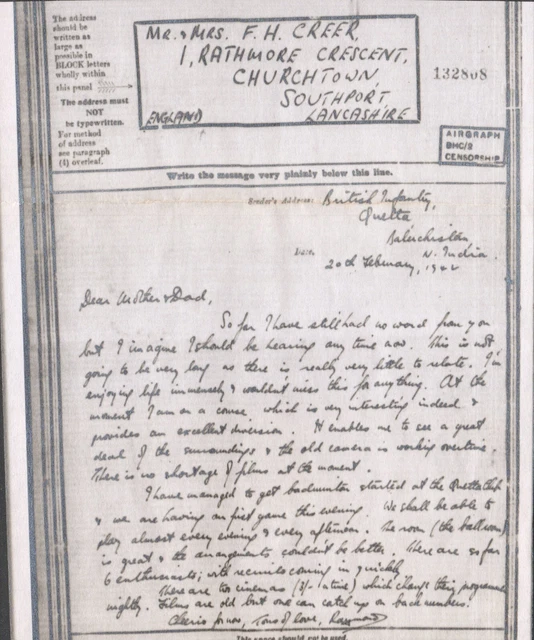 The address
should be
written as
large as
possible in
BLOCK letters
wholly within
this panel
The address must
NOT
be typewritten.
For method
of address
see paragraph
(4) overleaf.
MR. & MRS. F. H. CREER,
1, RATHMORE CRESCENT,
CHURCHTOWN,
SOUTHPORT,
LANCASHIRE
ENGLAND
132808
AIRGRAPH
CENSORSHIP
Write the message very plainly below this line.
Sender's Address: British Infantry,
Quetta
Baluchistan
N. India
Date. 20th February, 1942
Dear Mother & Dad,
So far I have still had no word from you
but I imagine I should be hearing any time now. This is not
going to be very long as there is really very little to relate. I'm
enjoying life immensely & wouldn't miss this for anything. At the
moment I am on a course, which is very interesting indeed &
provides an excellent diversion. It enables me to see a great
deal of the surroundings & the old camera is working overtime.
There is no shortage of films at the moment.
I have managed to get badminton started at the Quetta Club
& we are having our first game this evening. We shall be able to
play almost every evening & every afternoon. The room (the ballroom)
is great & the arrangements couldn't be better. There are so far
6 enthusiasts; with recruits coming in quickly.
There are two cinemas (3/- a time) which change their programme
nightly. Films are old but one can catch up on back numbers.
Cheerio for now, Tons of love,
This space should not be used.